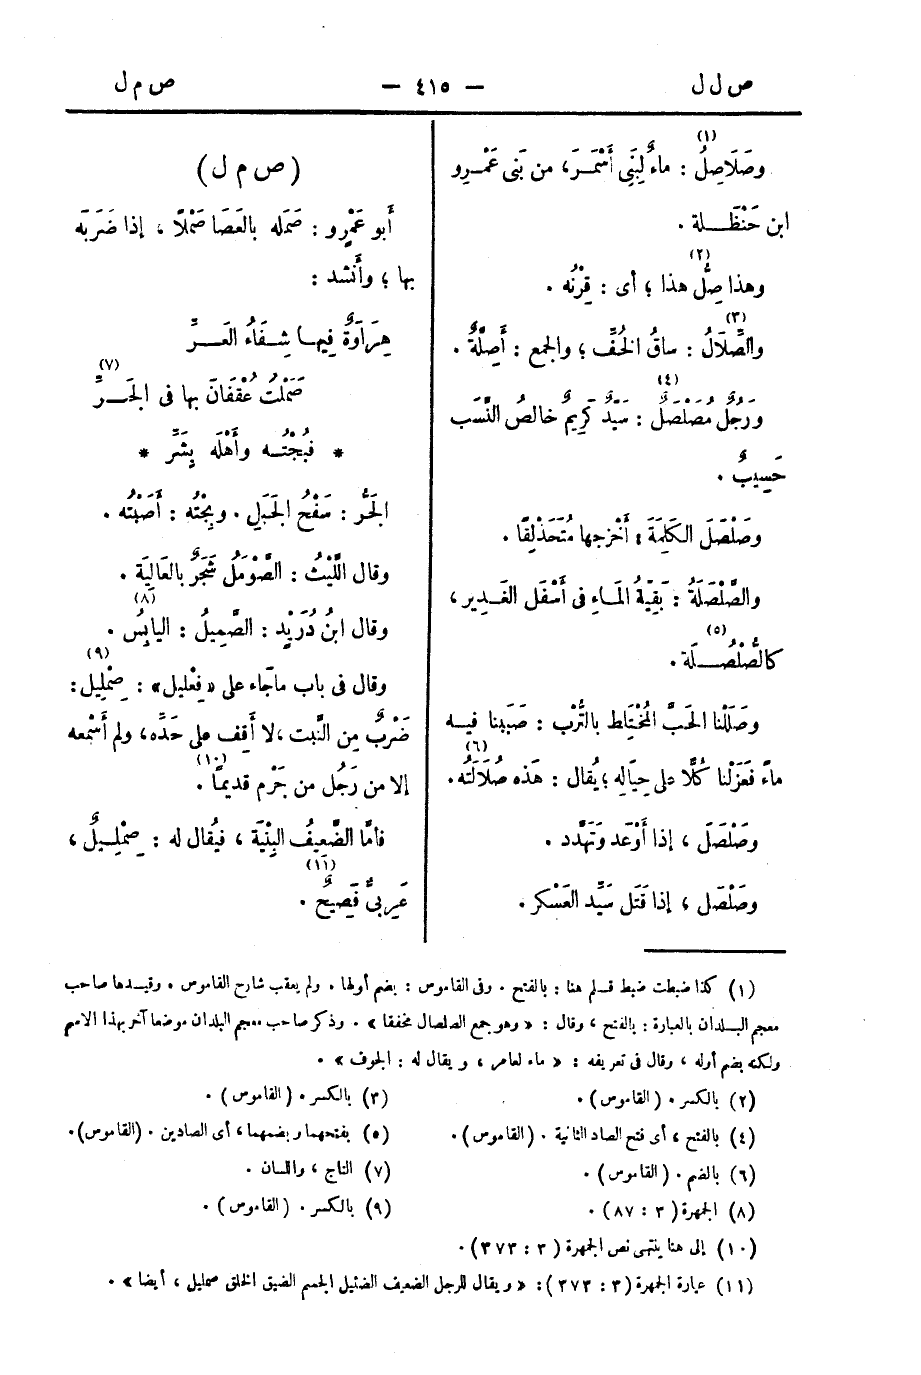 ص ل ل — ٤١٥ — ص م ل
وصَلَاصِلُ(١) : ماءٌ لِبَنِى أَسْمَرَ، من بَنى عَمْرِو
ابن حَنْظَلة .
وهذا صِلُّ(٢) هذا ؛ أى : قِرْنُه .
والصِّلَالُ(٣) : ساقُ الخُفِّ ؛ والجمع : أَصِلَّةٌ .
ورَجُلٌ مُصَلْصَلٌ(٤) : سَيِّدٌ كَرِيمٌ خالصُ النَّسَب
حَسِيبٌ .
وصَلْصَلَ الكَلِمَةَ : أَخْرجها مُتَحَذْلِقًا .
والصَّلْصَلَةُ : بَقِيَّةُ المَاءِ فى أَسْفَل الغَدِير ،
كالصُّلْصُلَة(٥) .
وصَلَلْنا الحَبَّ المُخْتَاط بالتُّرْب : صَبَبْنا فيه
ماءً فعَزَلْنا كُلًّا على حِيَالِه ؛ يُقال : هَذه صُلَالَتُه(٦) .
وصَلْصَلَ ، إذا أَوْعَد وتَهَدَّد .
وصَلْصَل ، إذا قَتَل سَيِّد العَسْكر .
( ص م ل )
أَبو عَمْرٍو : صَمَله بالعَصَا صَمْلًا ، إذا ضَرَبَه
بها ؛ وأَنشد :
هِرَاوَةٌ فِيهـا شِـفَاءُ العَـرِّ
صَمَلْتُ عُقْفَانَ بها فى الجَـرِّ(٧)
* فبُجْتُـه وأَهْلَه بِشَرِّ *
الجَرُّ : سَفْحُ الجَبَلِ . وبجْتُه : أَصَبْتُه .
وقال اللَّيْثُ : الصَّوْمَلُ شَجَرٌ بالعَالِيَة .
وقال ابنُ دُرَيْدٍ : الصَّمِيلُ : اليابِسُ(٨) .
وقال فى باب ماجَاء على « فِعْليل » : صِمْلِيل(٩) :
ضَرْبٌ مِن النَّبت ، لا أَقِف على حَدِّه ، ولم أَسْمعه
إلا من رَجُل من جَرْم قديمًا(١٠) .
فأمَّا الضَّعِيفُ البِنْيَة ، فيُقال له : صِمْلِيلٌ ،
عَرَبىٌّ فَصِيحٌ(١١) .
(١) كذا ضبطت ضبط قـلم هنا : بالفتح . وفى القاموس : بضم أولها . ولم يعقب شارح القاموس . وقيـدها صاحب
معجم البـلدان بالعبارة : بالفتح ، وقال : « وهو جمع الصلصال مخففا » . وذكر صاحب معجم البلدان موضعا آخر بهذا الاسم
ولكنه بضم أوله ، وقال فى تعريفه : « ماء لعامر ، ويقال له : الجوف » .
(٢) بالكسر . (القاموس) . (٣) بالكسر . (القاموس) .
(٤) بالفتح ، أى فتح الصاد الثانية . (القاموس) . (٥) بفتحهما وبضمهما ، أى الصادين . (القاموس).
(٦) بالضم . (القاموس) . (٧) التاج ، واللسان .
(٨) الجمهرة (٣ : ٨٧) . (٩) بالكسر . (القاموس) .
(١٠) إلى هنا ينتهى نص الجمهرة (٣ : ٣٧٣) .
(١١) عبارة الجمهرة (٣ : ٣٧٣) : « ويقال للرجل الضعيف الضئيل الجسم الضيق الخلق صمليل ، أيضا » .